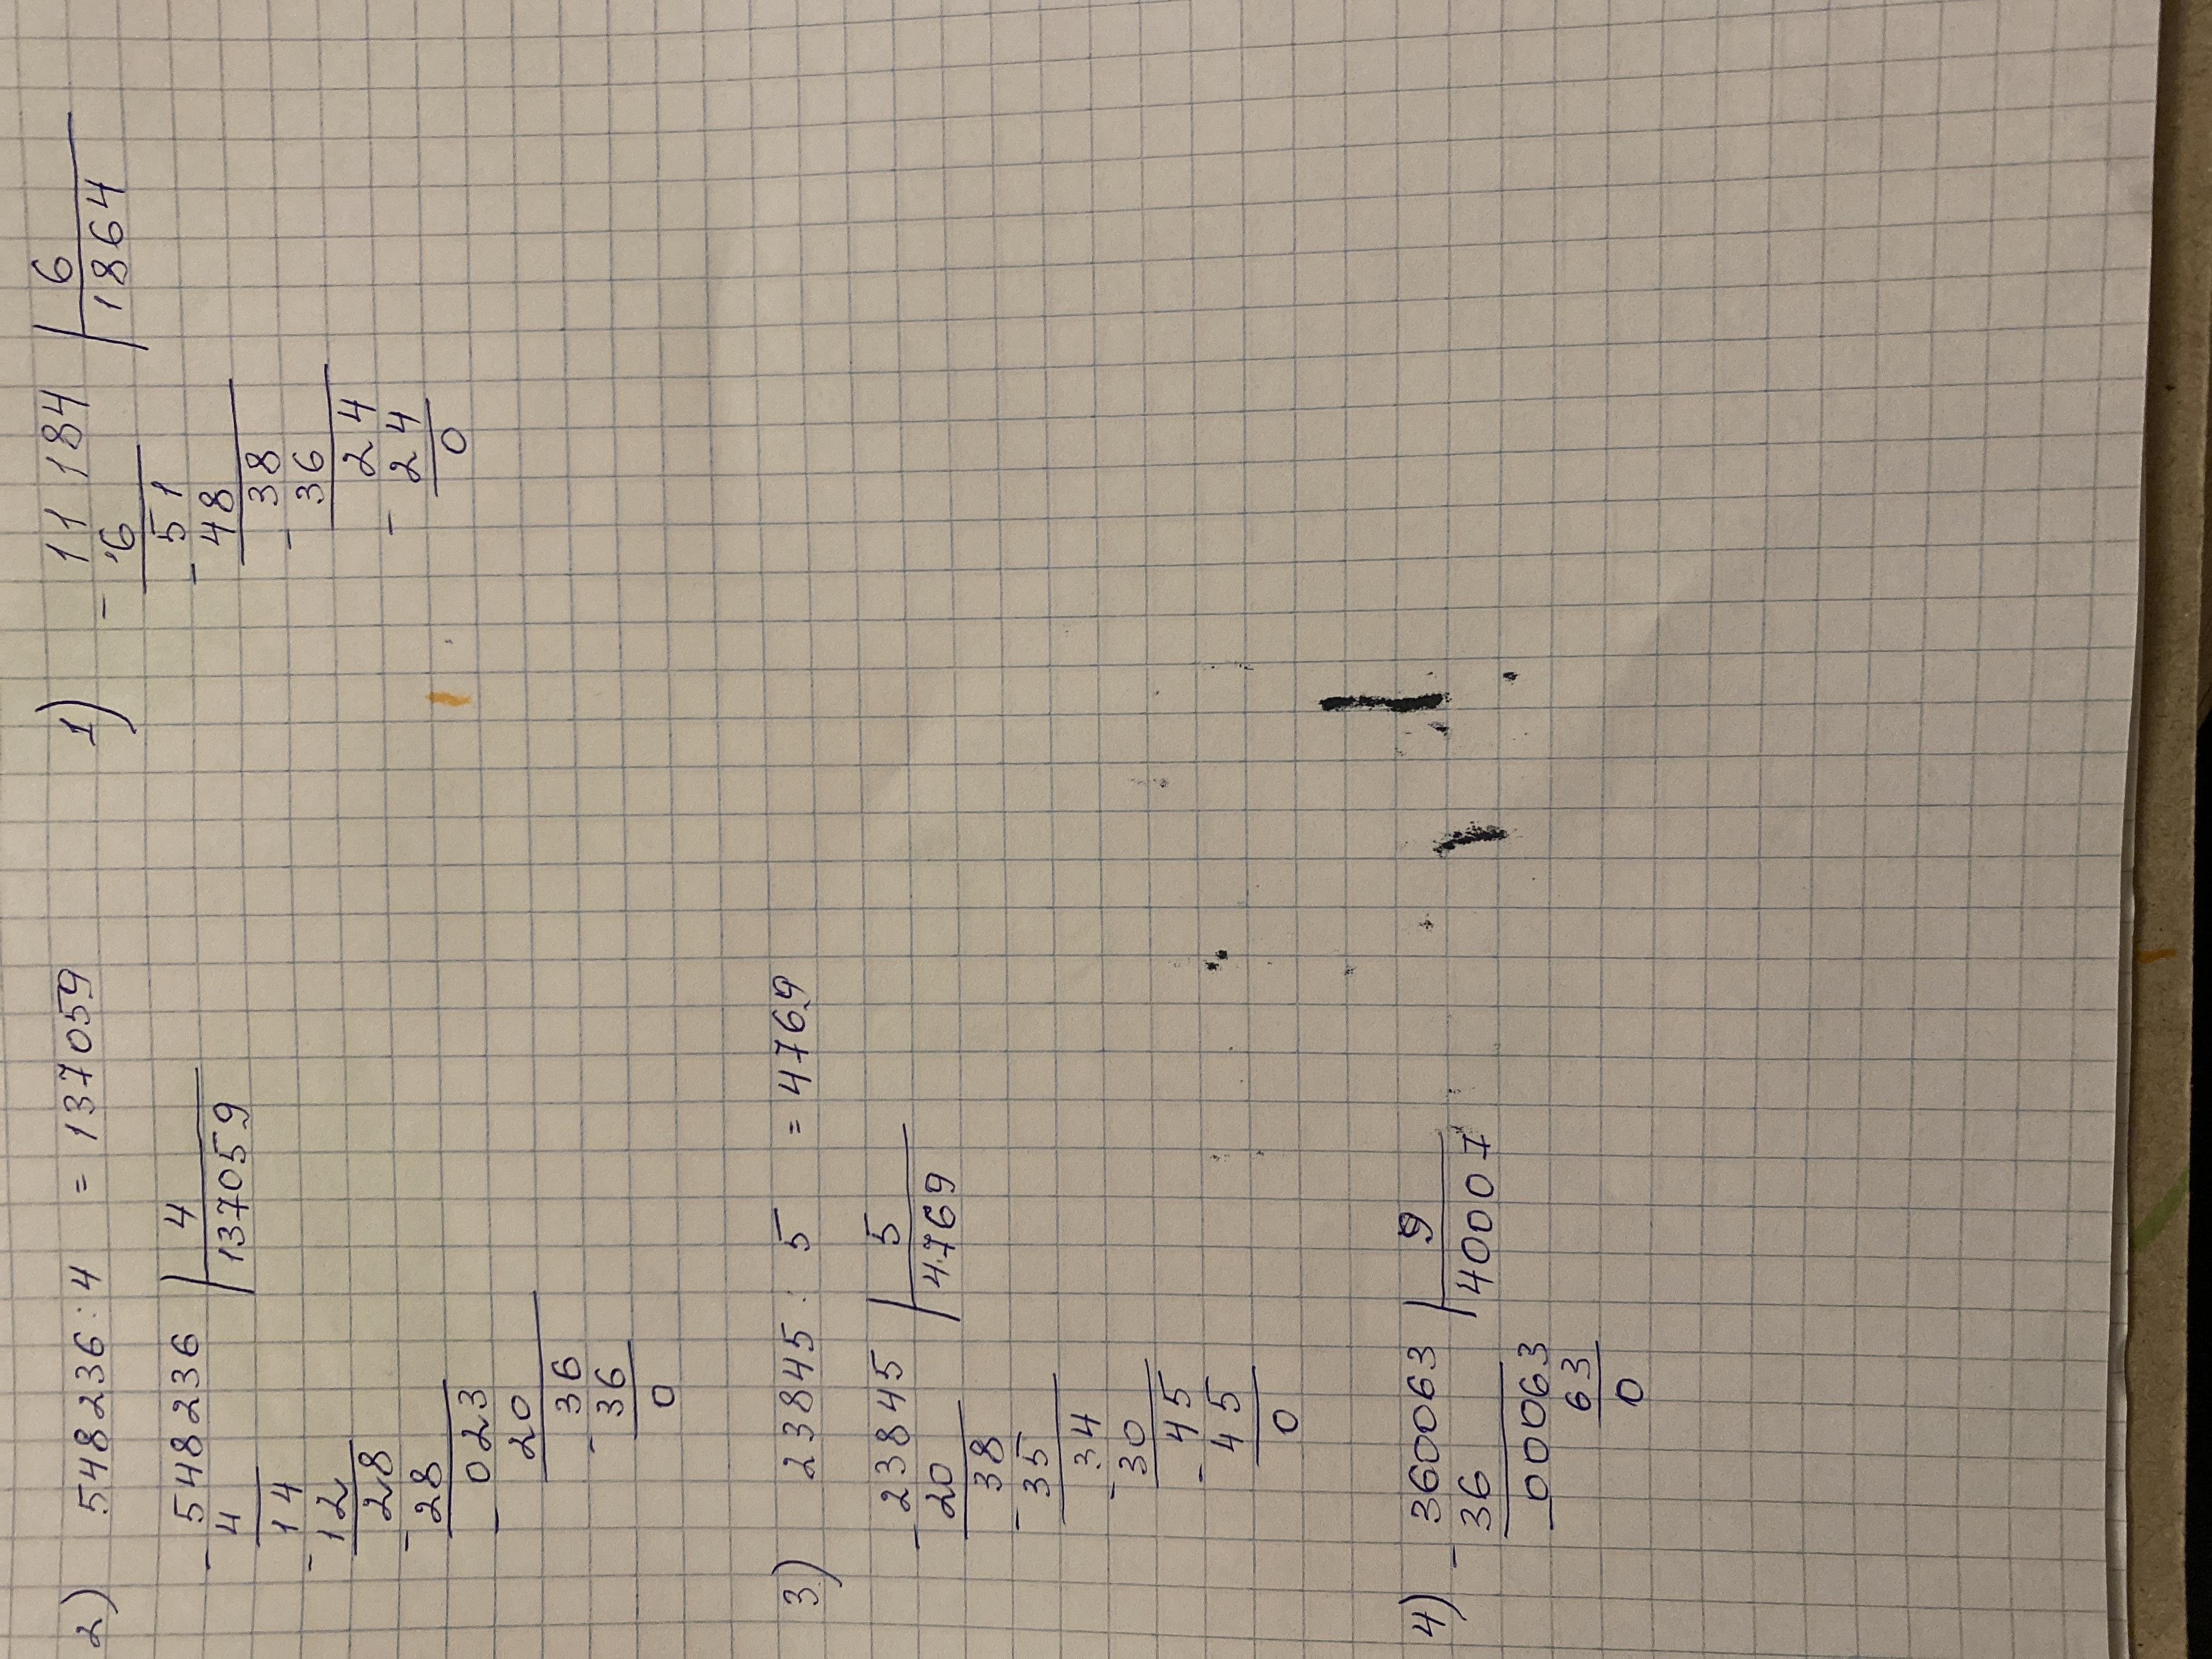 2) 548236 : 4 = 137059
- 548236 | 4
4 | 137059
14
- 12
28
- 28
- 023
20
36
- 36
0
1)
- 11 184 | 6
6 | 1864
51
- 48
38
- 36
24
- 24
0
3) 23845 : 5 = 4769
- 23845 | 5
20 | 4769
38
- 35
34
- 30
45
- 45
0
4) - 360063 | 9
36 | 40007
00063
63
0